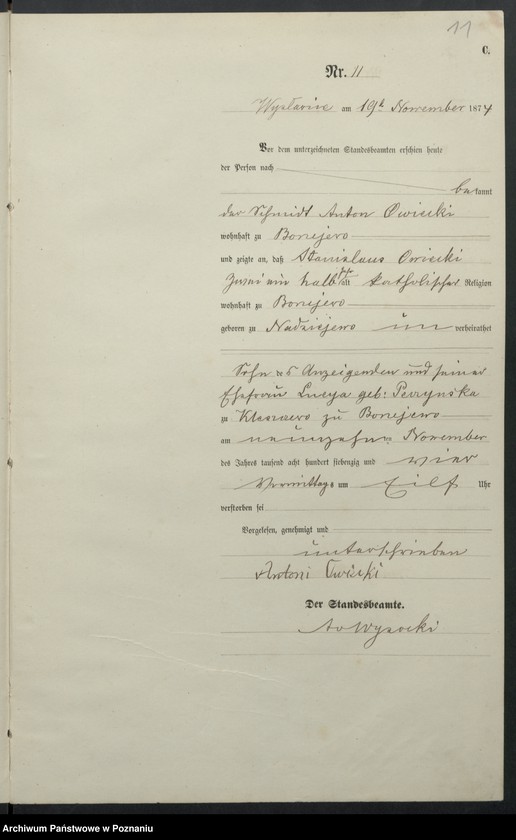 11
C.
Nr. 11
Wysławice am 19t November 1874
Vor dem unterzeichneten Standesbeamten erschien heute
der Person nach
bekannt
der Schmidt Anton Cwicicki
wohnhaft zu Bonejewo
und zeigte an, daß Stanislaus Cwicicki
Zwei ein halb Jahr alt katholischer Religion
wohnhaft zu Bonejewo
geboren zu Nadziejewo un verheirathet
Sohn des Anzeigenden und seiner
Ehefrau Lucya geb:
zu zu Bonejewo
am neunzehn November
des Jahres tausend acht hundert siebenzig und vier
Vormittags um Eilf Uhr
verstorben sei
Vorgelesen, genehmigt und
unterschrieben
Antoni Cwicicki
Der Standesbeamte.
Wysocki
Archiwum Państwowe w Poznaniu